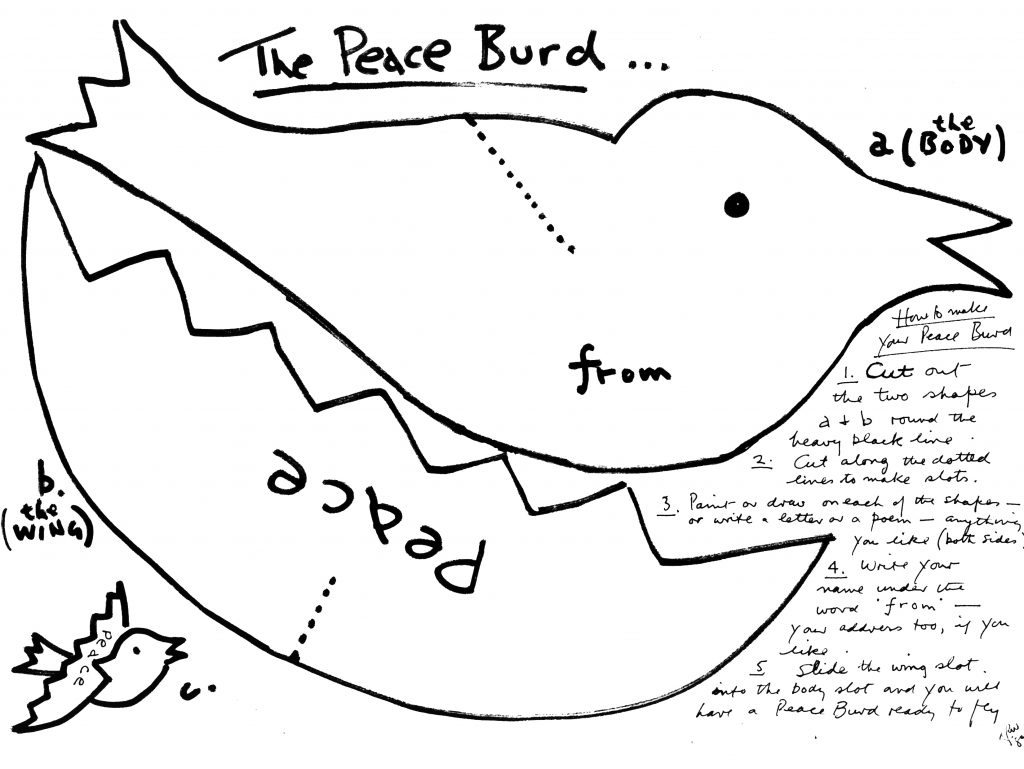 The Peace Burd ...
a (the BODY)
from
Peace
b.
(the WING)
Peace
c.
How to make
your Peace Burd
1. Cut out
the two shapes
a + b round the
heavy black line.
2. Cut along the dotted
lines to make slots.
3. Paint or draw on each of the shapes —
or write a letter or a poem — anything
you like (both sides)
4. Write your
name under the
word 'from' —
your address too, if you
like.
5 Slide the wing slot.
into the body slot and you will
have a Peace Burd ready to fly